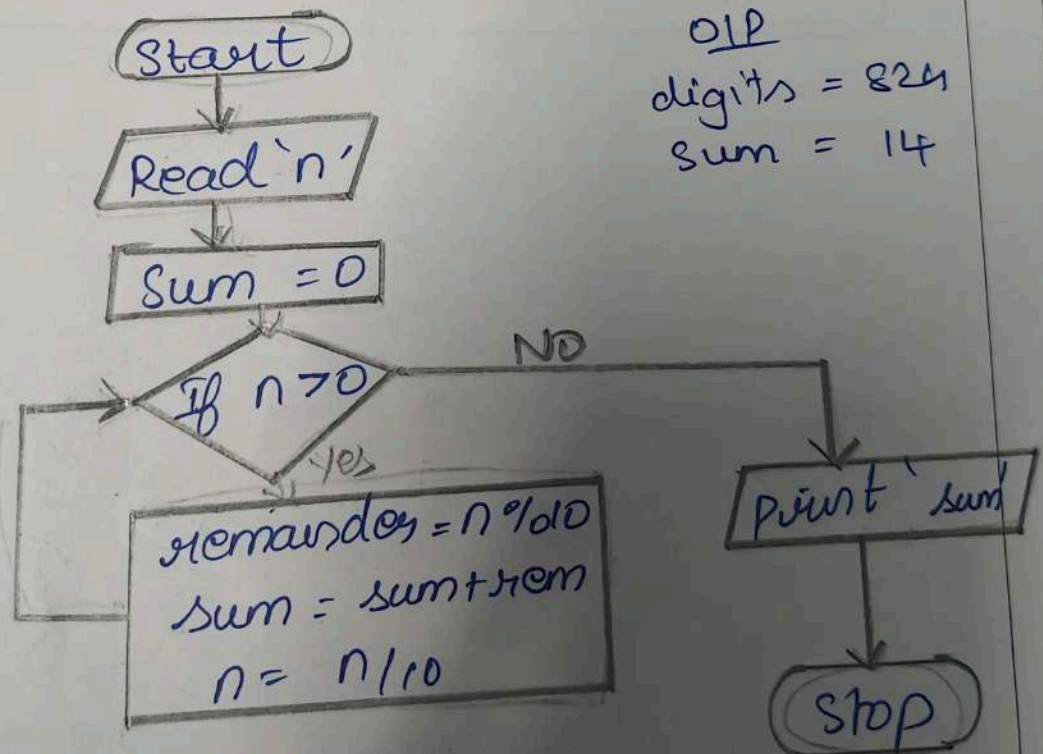 Start
Read 'n'
Sum = 0
If n>0
NO
Yes
remainder = n%10
sum = sum+rem
n = n/10
print 'sum'
Stop
O/P
digits = 824
sum = 14